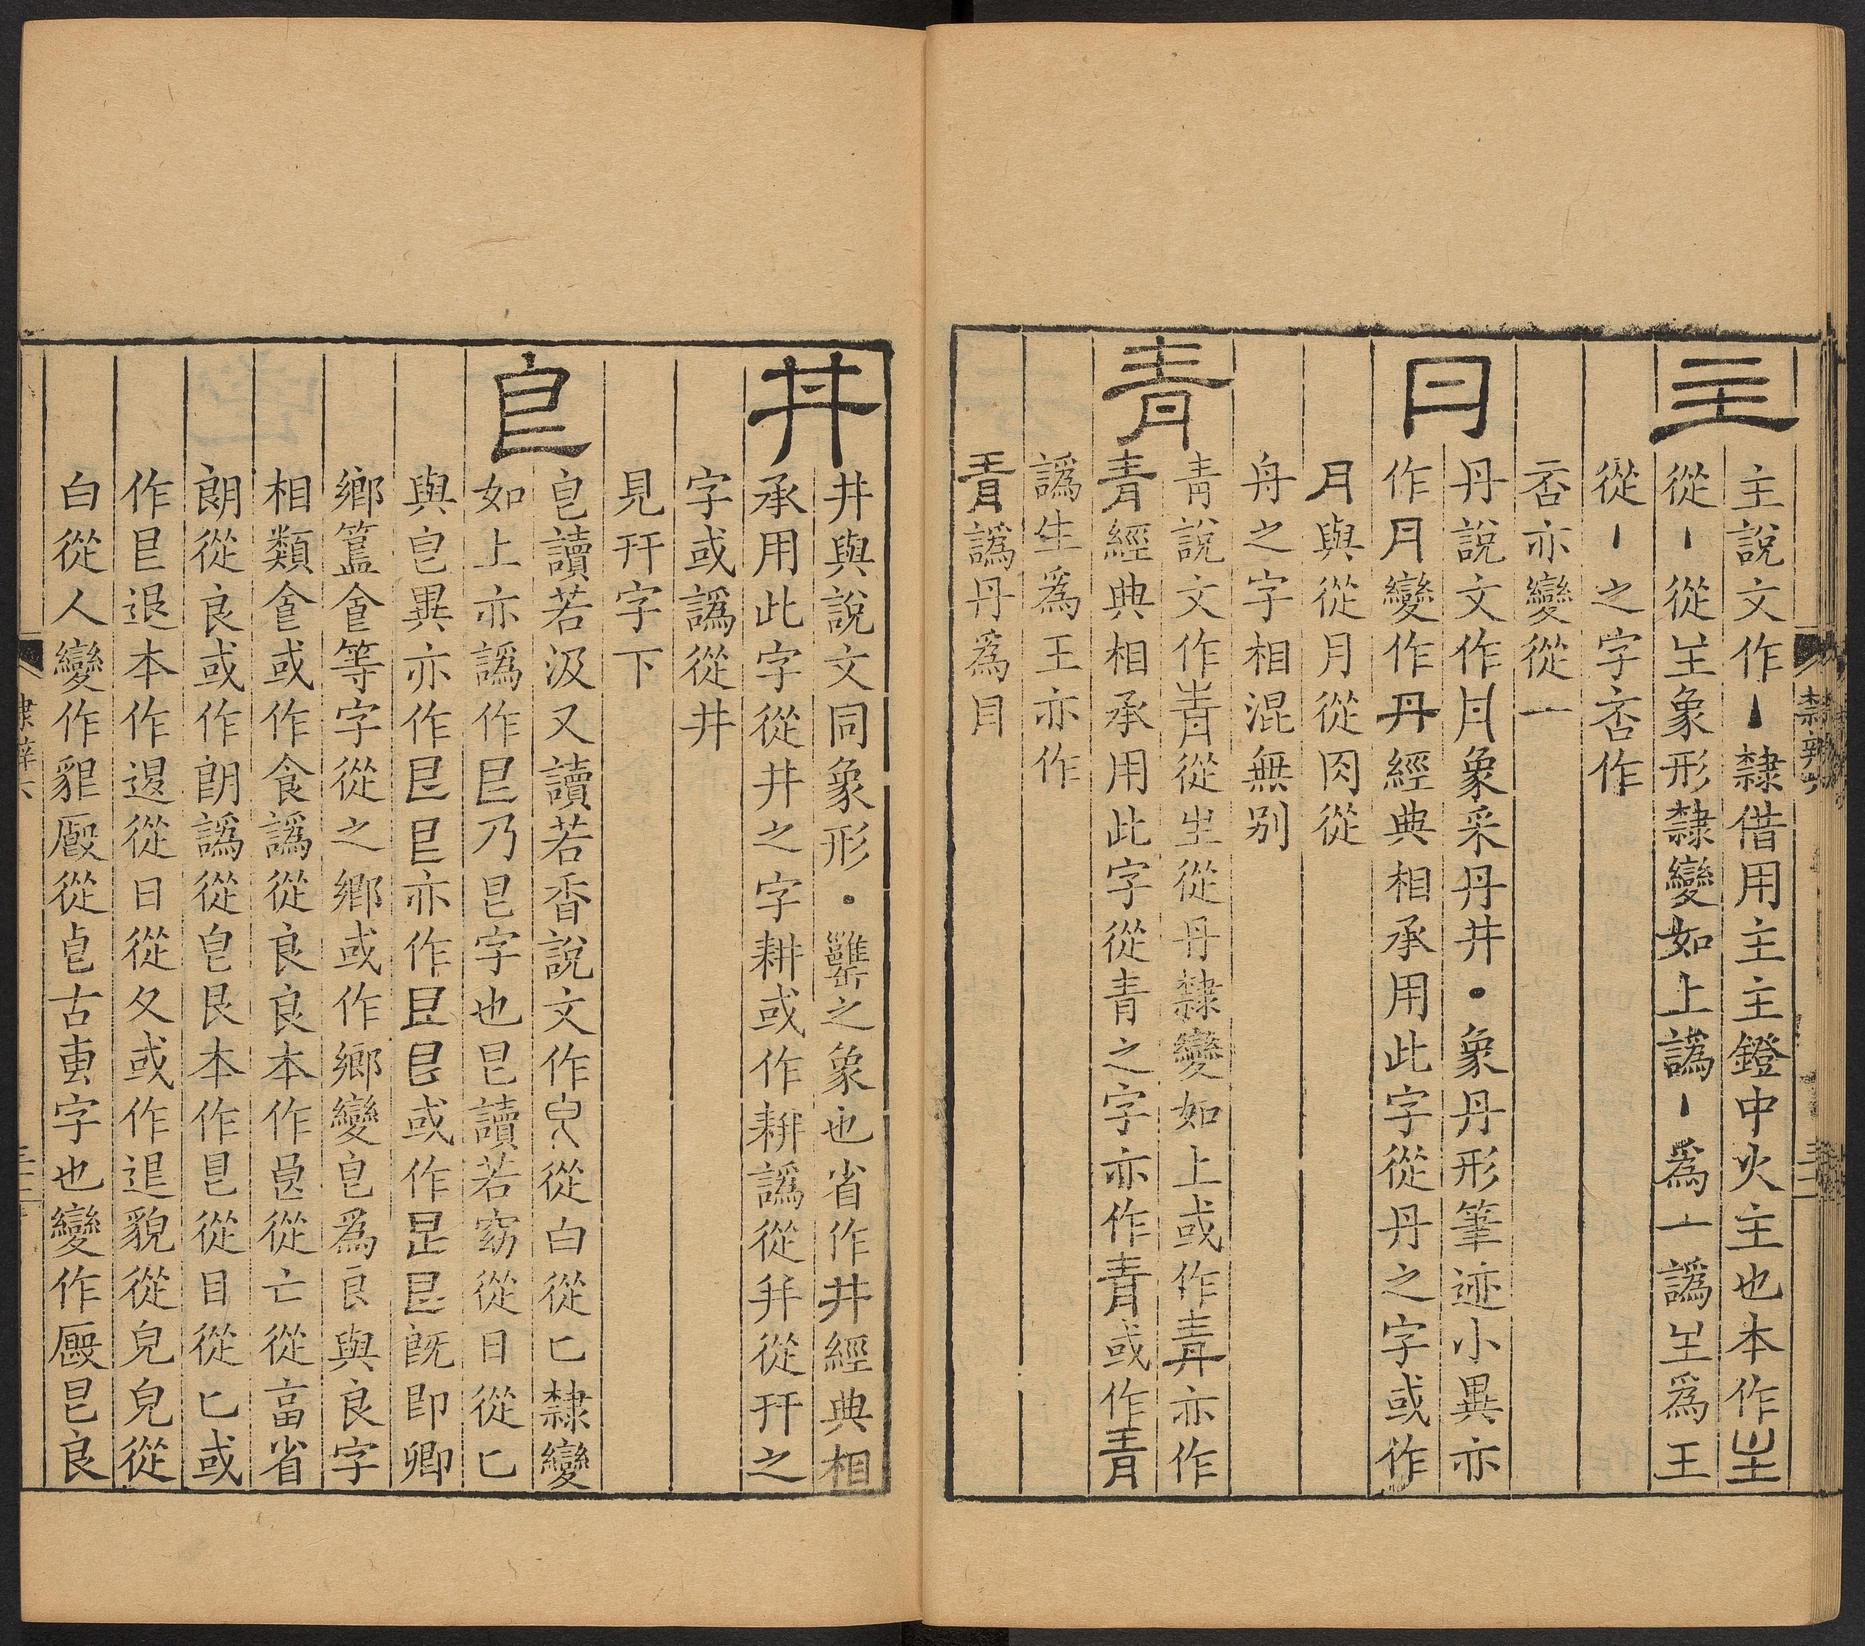 主
主說文作丶隸借用主主鐙中火主也本作
從丶從𡈼象形隸變如上譌丶爲亠譌𡈼爲王
從丶之字否作
否亦變從一
丹
丹說文作月象采丹井丶象丹形筆迹小異亦
作月變作丹經典相承用此字從丹之字或作
月與從月從肉從
舟之字相混無別
青
靑說文作靑從生從丹隸變如上或作靑亦作
青經典相承用此字從青之字亦作青或作青
譌生爲王亦作
青譌丹爲目
隸辨六
井
井與說文同象形丶罋之象也省作井經典相
承用此字從井之字耕或作耕譌從幷從幵之
字或譌從井
見幵字下
皀
皀讀若汲又讀若香說文作皀從白從匕隸變
如上亦譌作㠯乃皀字也皀讀若窈從日從匕
與皀異亦作㠯㠯亦作㠯㠯或作㠯㠯旣卽卿
鄉簋食等字從之鄉或作鄉變皀爲良與良字
相類食或作食譌從良良本作㫐從亡從畗省
朗從良或作朗譌從皀艮本作皀從目從匕或
作㠯退本作𢓴從日從夂或作退貌從皃皃從
白從人變作貇廏從皀古叀字也變作廏皀良
隸辨六